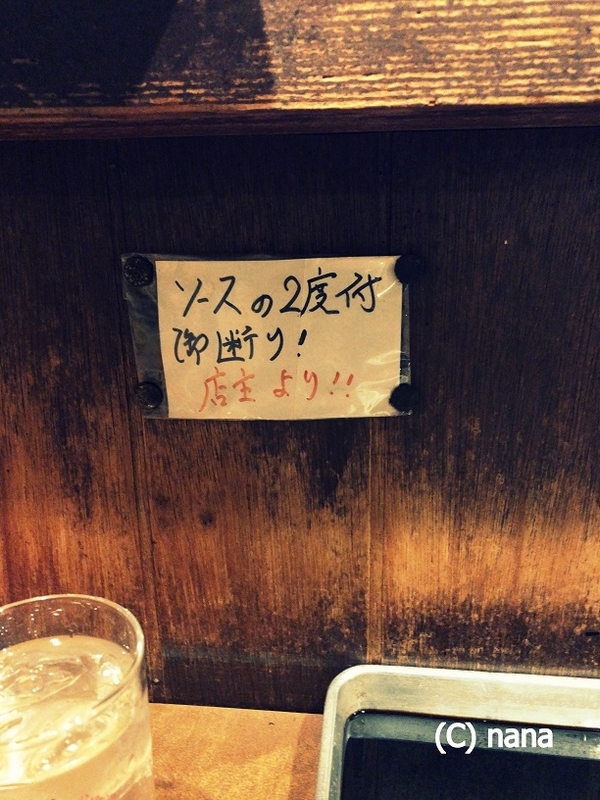 ソースの2度付
御断り!
店主より!!
(C) nana